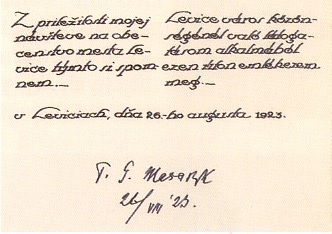 Z príležitosti mojej
návštevy na obe-
censtvo mesta Le-
vice týmto si spom-
nem._
Levice város közön-
ségénél való látoga-
tásom alkalmából
ezen sition emlékezem
meg._
v Leviciach, dňa 26-ho augusta 1923.
T. G. Masaryk
26/VIII '23.